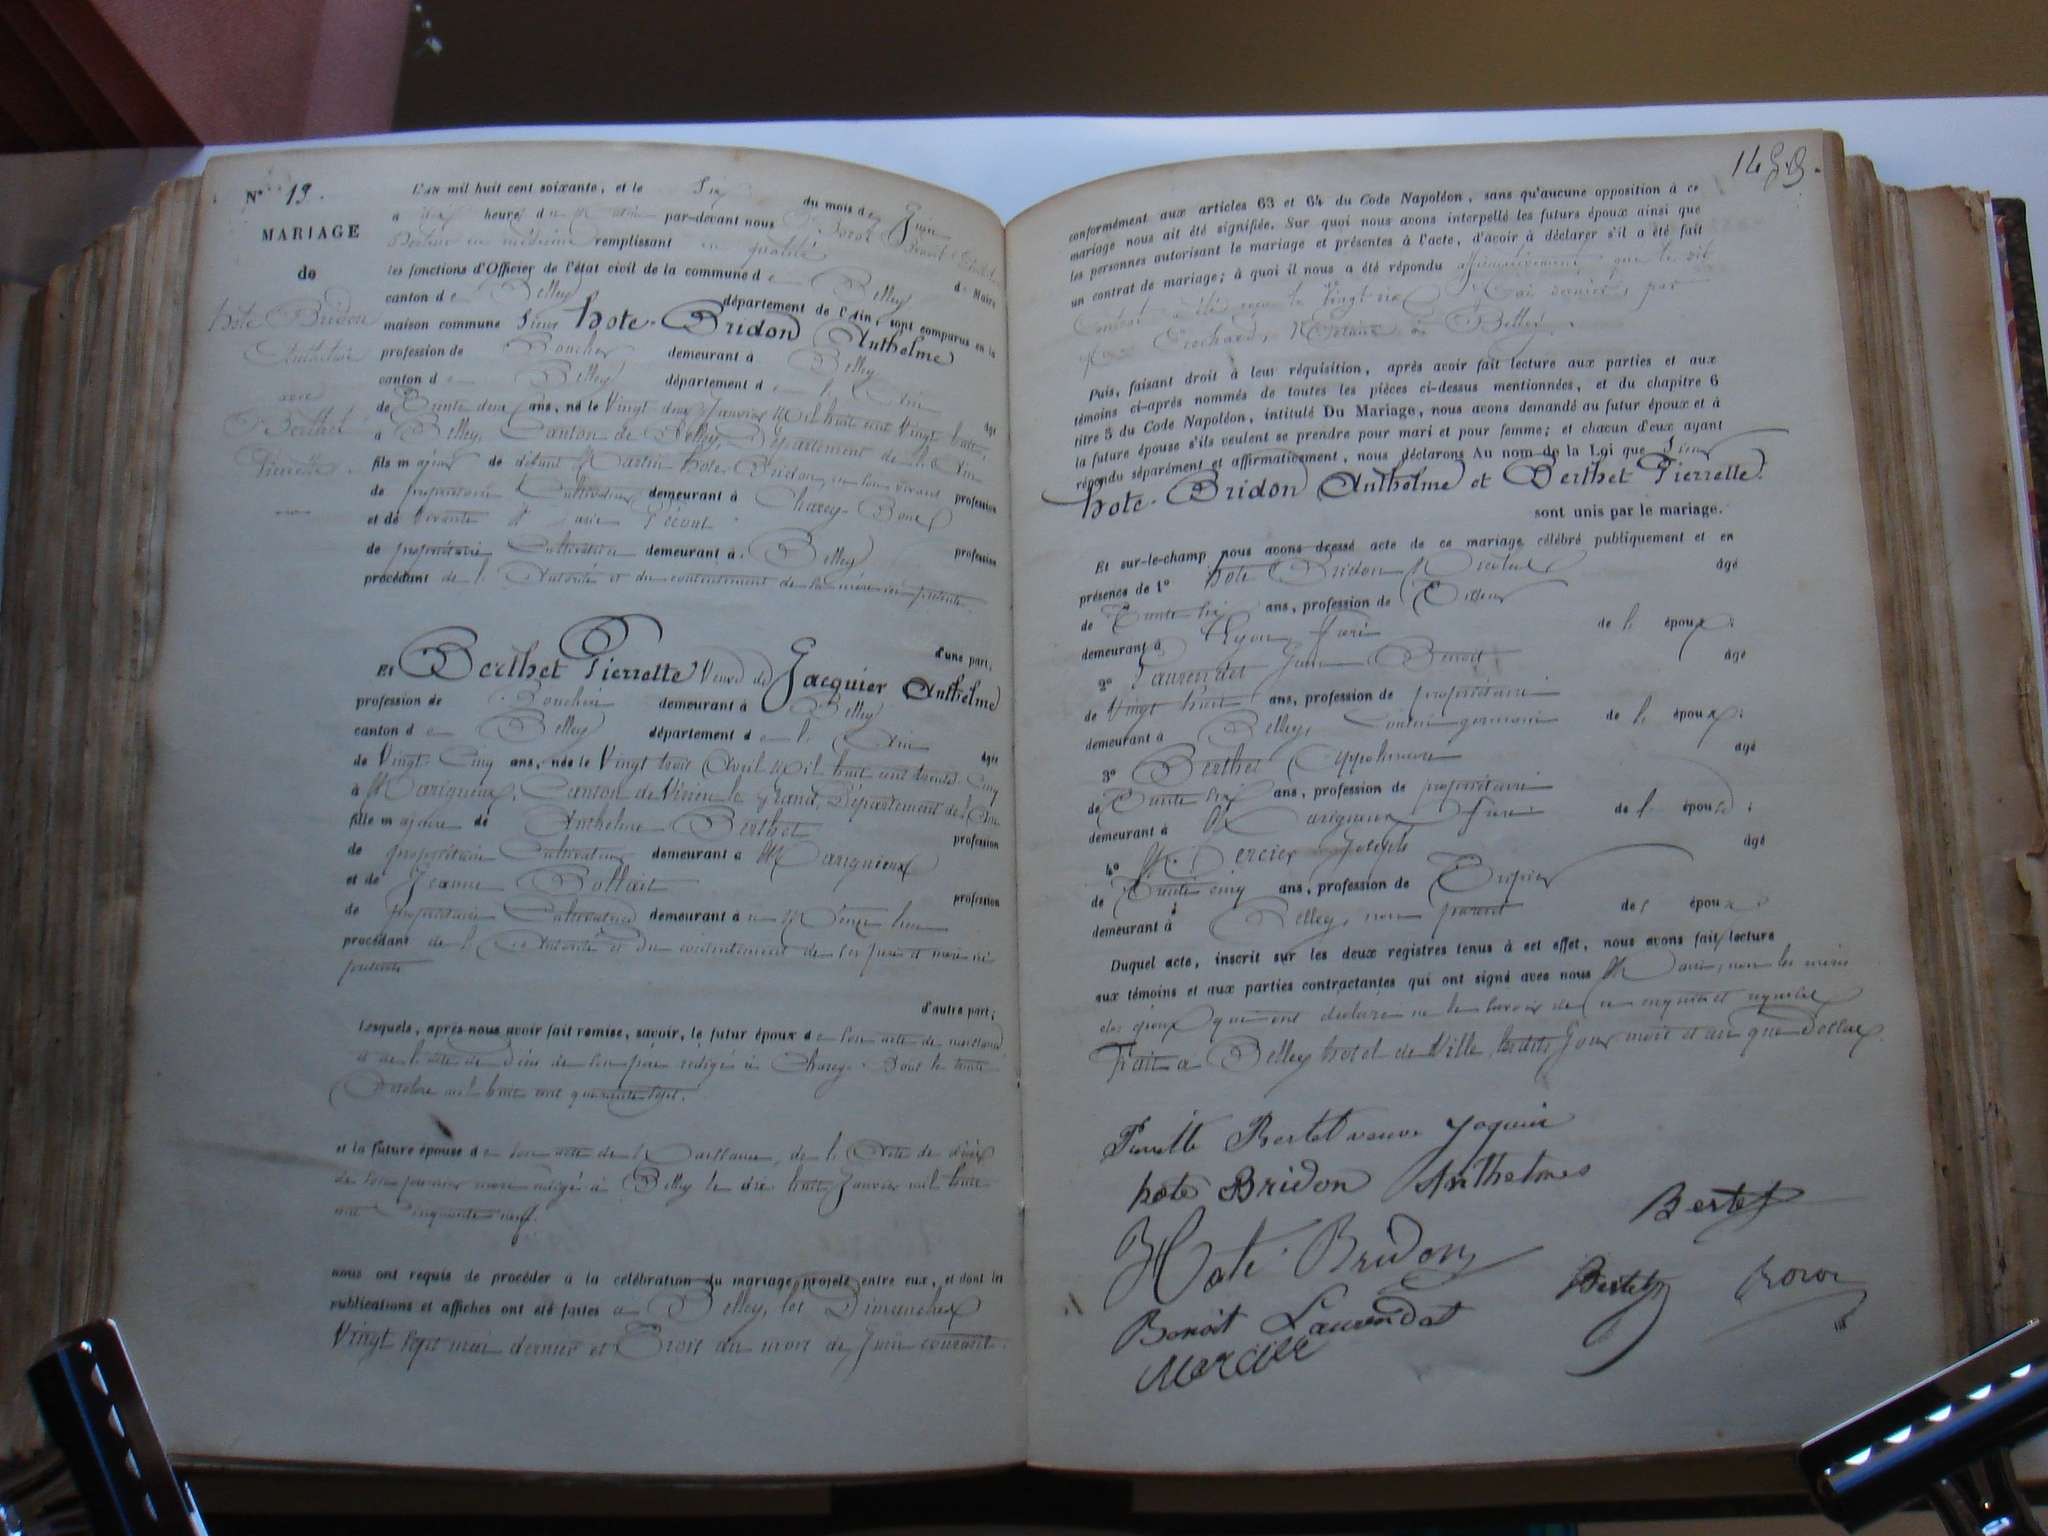 N° 19.
MARIAGE
de
hote Bridon
Anthelme
avec
Berthet
Pierrette.
L'AN mil huit cent soixante, et le Six du mois de Juin
à heures du Matin par-devant nous Benoit
Docteur en médecine remplissant en qualité de Maire
les fonctions d'Officier de l'état civil de la commune de Belley
canton de Belley département de l'Ain, sont comparus en la
maison commune Sieur hote-Bridon Anthelme
profession de Boucher demeurant à Belley
canton de Belley département de l'Ain âgé
de Trente deux ans, né le Vingt deux Janvier Mil huit cent Vingt huit
à Belley, Canton de Belley, Département de l'Ain
fils majeur de défunt Martin hote-Bridon, en son vivant profession
de propriétaire Cultivateur demeurant à Charey-Doux
et de vivante Marie profession
de propriétaire Cultivatrice demeurant à Belley
procédant de l'Autorité et du consentement de sa mère ici présente.
d'une part,
Et Berthet Pierrette Veuve de Jacquier Anthelme
profession de Bouchère demeurant à Belley
canton de Belley département de l'Ain âgée
de Vingt-Cinq ans, née le Vingt trois Avril Mil huit cent trente-Cinq
à Marigneux, Canton de Virieu le Grand, Département de l'Ain
fille majeure de Anthelme Berthet profession
de propriétaire Cultivateur demeurant à Marignieux
et de Jeanne profession
de propriétaire Cultivatrice demeurant à Même lieu
procédant de l'Autorité et du consentement de ses père et mère ici
présents
d'autre part;
Lesquels, après nous avoir fait remise, savoir, le futur époux de son acte de naissance
et de l'acte de décès de son père rédigé à Charey-Doux le trente
Octobre mil huit cent quarante sept.
et la future épouse de son acte de Naissance, de l'Acte de décès
de son premier mari rédigé à Belley le dix huit Janvier mil huit
cent Cinquante neuf.
nous ont requis de procéder à la célébration du mariage projeté entre eux, et dont les
publications et affiches ont été faites à Belley, les Dimanches
Vingt sept mai dernier et Trois du mois de Juin courant.
conformément aux articles 63 et 64 du Code Napoléon, sans qu'aucune opposition à ce
mariage nous ait été signifiée. Sur quoi nous avons interpellé les futurs époux ainsi que
les personnes autorisant le mariage et présentes à l'acte, d'avoir à déclarer s'il a été fait
un contrat de mariage; à quoi il nous a été répondu affirmativement que le dit
Contrat a été reçu le Vingt six Mai dernier, par
Notaire à Belley.
Puis, faisant droit à leur réquisition, après avoir fait lecture aux parties et aux
témoins ci-après nommés de toutes les pièces ci-dessus mentionnées, et du chapitre 6
titre 5 du Code Napoléon, intitulé Du Mariage, nous avons demandé au futur époux et à
la future épouse s'ils veulent se prendre pour mari et pour femme; et chacun d'eux ayant
répondu séparément et affirmativement, nous déclarons Au nom de la Loi que Sieur
hote-Bridon Anthelme et Berthet Pierrette.
sont unis par le mariage.
Et sur-le-champ nous avons dressé acte de ce mariage célébré publiquement et en
présence de 1° hote Bridon âgé
de Trente six ans, profession de
demeurant à Lyon, frère de l'époux;
2° Laurendet Benoit âgé
de Vingt huit ans, profession de propriétaire
demeurant à Belley, Cousin germain de l'époux;
3° Berthet âgé
de Trente six ans, profession de propriétaire
demeurant à Marigneux frère de l'épouse;
4° Mercier Joseph âgé
de Trente cinq ans, profession de
demeurant à Belley, non parent des époux
Duquel acte, inscrit sur les deux registres tenus à cet effet, nous avons fait lecture
aux témoins et aux parties contractantes qui ont signé avec nous Maire, non les mères
des époux qui ont déclaré ne le savoir de ce enquises et
Fait à Belley hotel de Ville, lesdits Jour mois et an que dessus.
Pierrette Bertet veuve Jaquier
hote Bridon Anthelmes
Bertet
Hote Bridon
Bertet
Benoit Laurendet
Mercier